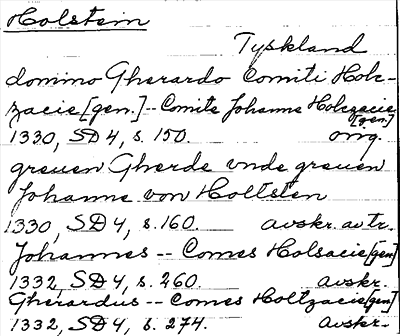 Holstein
Tyskland
domino Gherardo Comiti Holt-
zacie [gen.] -- Comite Johanne Holczacie [gen]
1330, SD 4, s. 150. orig.
greuen Gherde vnde greuen
Johanne von Holtsten
1330, SD 4, s. 160. avskr. av tr.
Johannes -- Comes Holsacie [gen]
1332, SD 4, s. 260. avskr.
Gherardus -- Comes Holtzacie [gen]
1332, SD 4, s. 274. avskr.